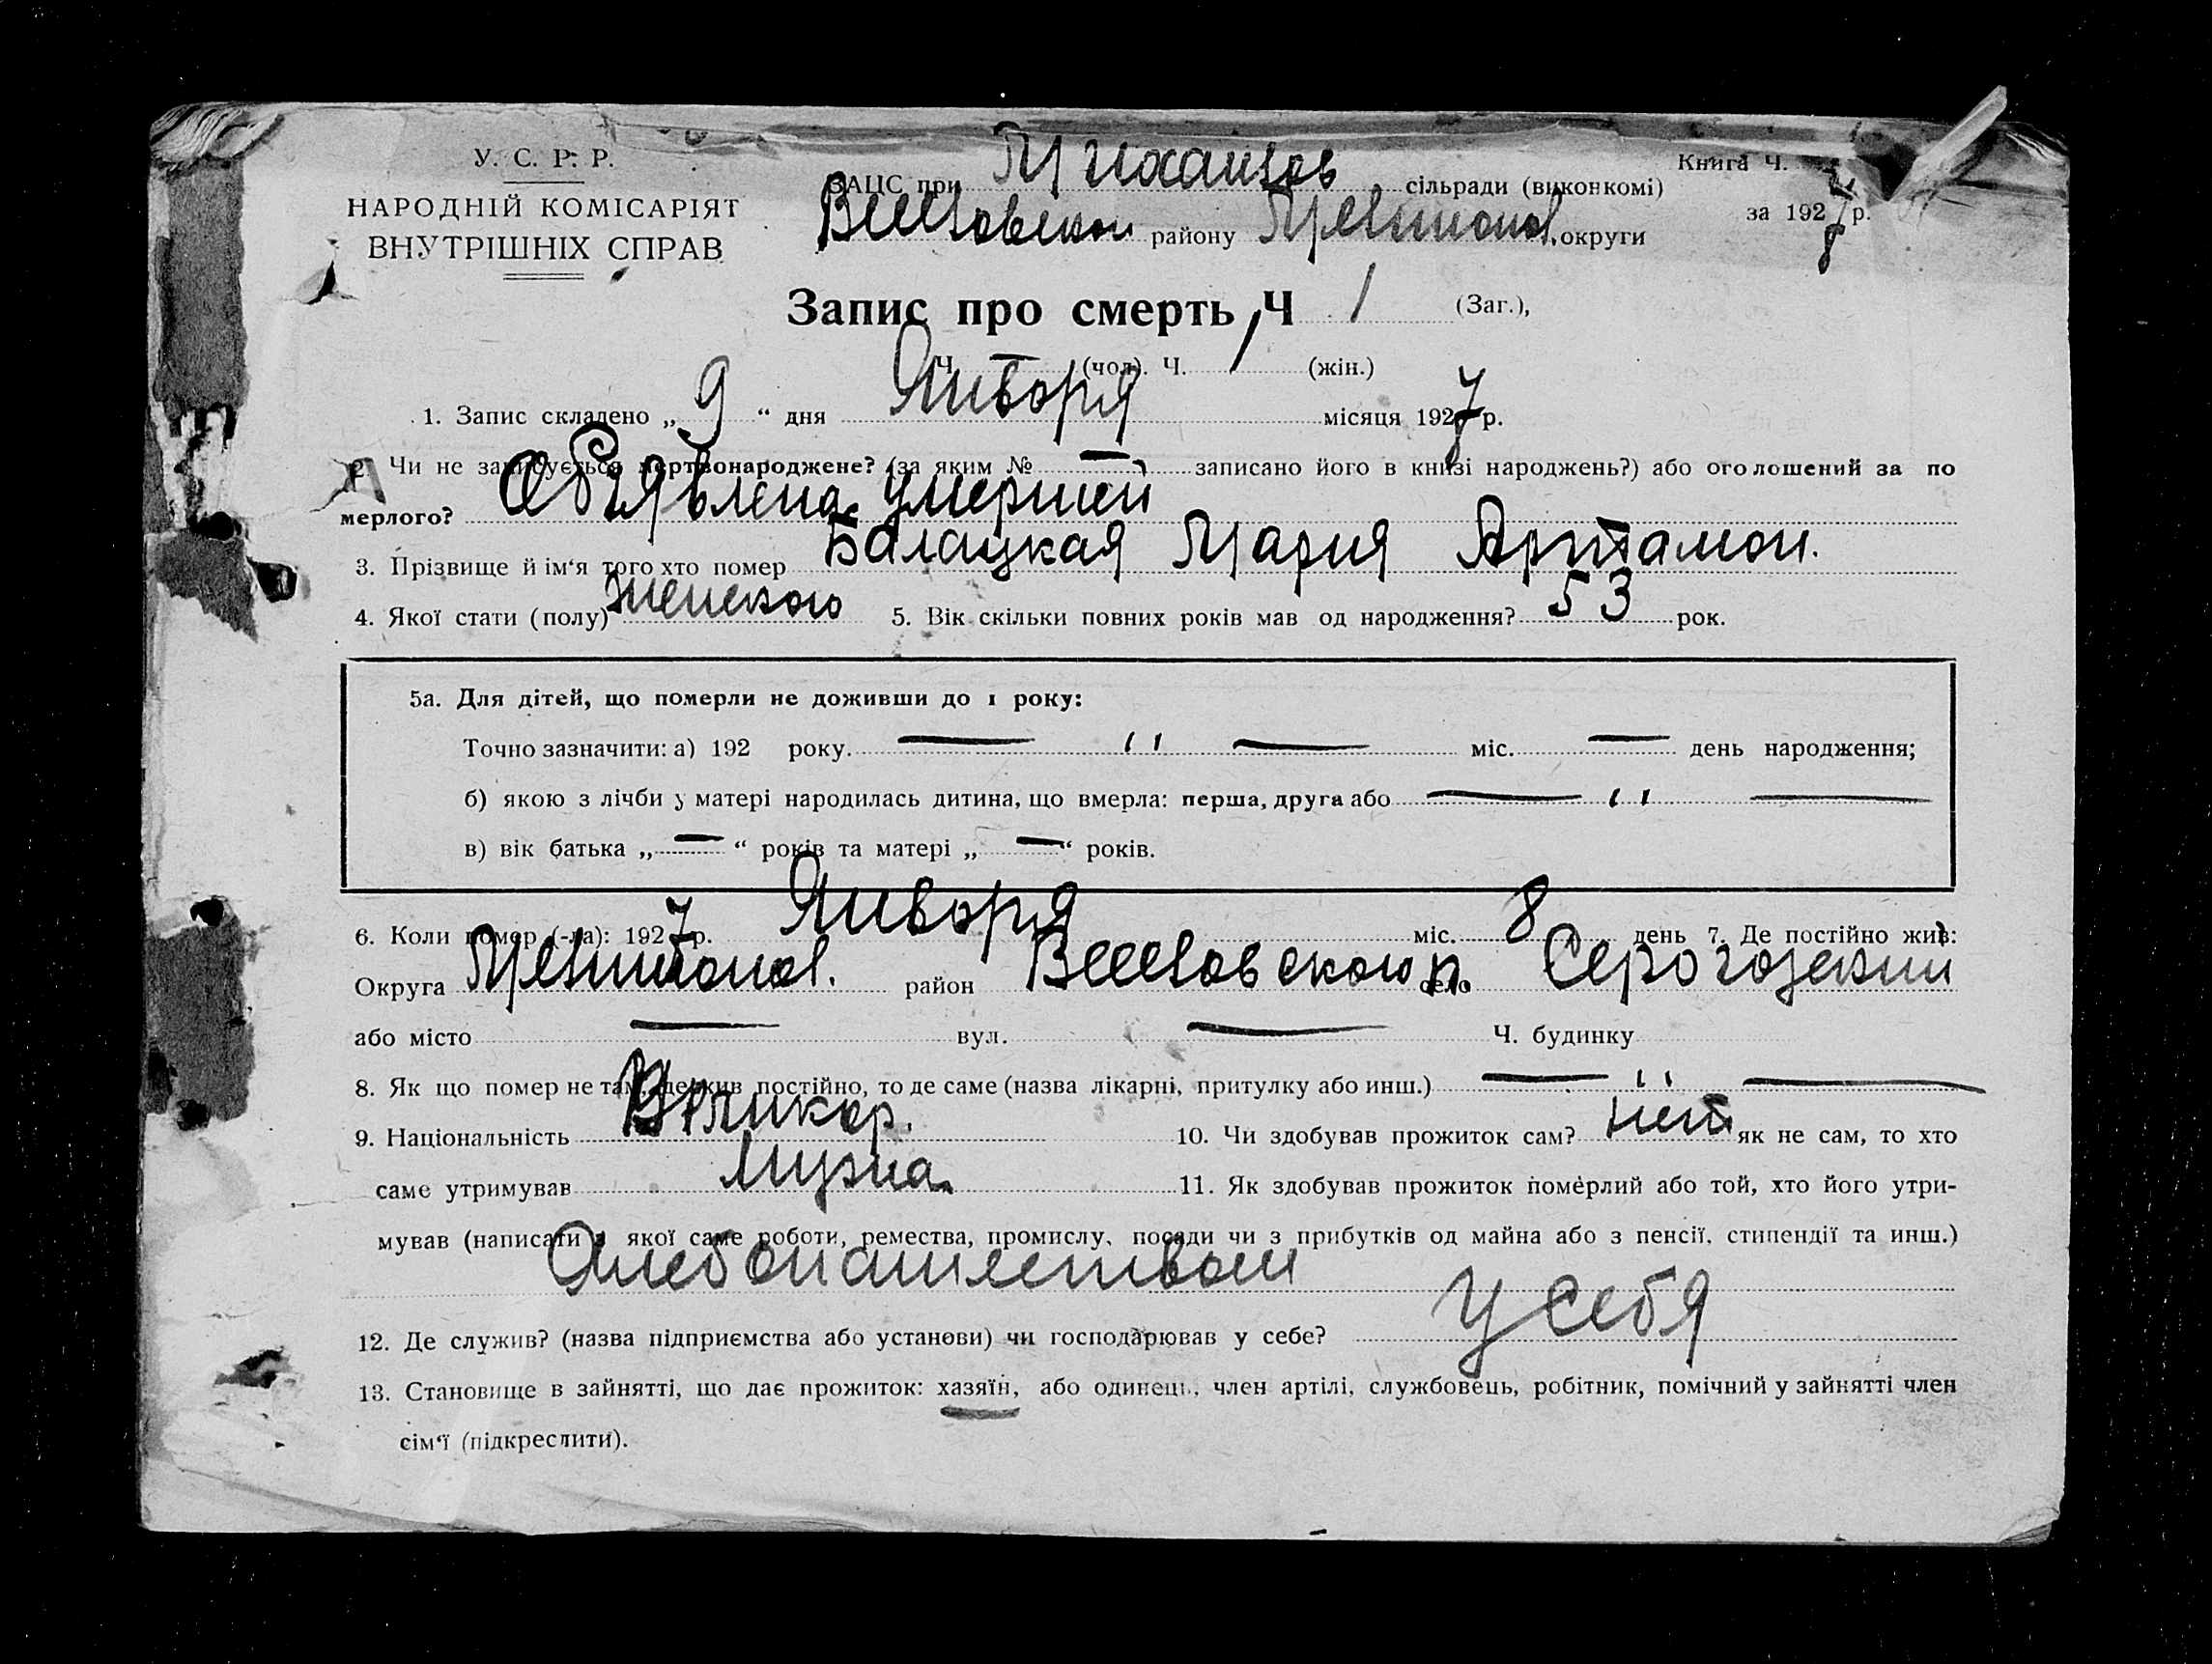 У. С. Р. Р.
НАРОДНІЙ КОМІСАРІЯТ
ВНУТРІШНІХ СПРАВ
Книга Ч.
ЗАЦС при Михайлов сільради (виконкомі)
за 1927 р.
району Мелитопол. округи
Запис про смерть Ч 1 (Заг.),
Ч. — (чол). Ч. 1 (жін.)
1. Запис складено „ 9 “ дня Января місяця 1927 р.
2. Чи не записується мертвонароджене? (за яким № — записано його в книзі народжень?) або оголошений за по
мерлого? Объявлена умершей
3. Прізвище й ім‘я того хто помер Балацкая Мария Артамон.
4. Якої стати (полу) женского 5. Вік скільки повних років мав од народження? 53 рок.
5а. Для дітей, що померли не доживши до 1 року:
Точно зазначити: а) 192 року. — " — міс. — день народження;
б) якою з лічби у матері народилась дитина, що вмерла: перша, друга або — " —
в) вік батька „ — “ років та матері „ — “ років.
6. Коли помер (-ла): 1927 р. Января міс. 8 день 7. Де постійно жив:
Округа Мелитопол. район Веселовского р. село Серогозский
або місто — вул. — Ч. будинку
8. Як що помер не там де жив постійно, то де саме (назва лікарні, притулку або инш.) — " —
9. Національність Великор. 10. Чи здобував прожиток сам? нет як не сам, то хто
саме утримував Мужа 11. Як здобував прожиток померлий або той, хто його утри-
мував (написати з якої саме роботи, ремества, промислу, посади чи з прибутків од майна або з пенсії, стипендії та инш.)
Хлебопашеством
12. Де служив? (назва підприємства або установи) чи господарював у себе? у себя
13. Становище в зайнятті, що дає прожиток: хазяїн, або одинець, член артілі, службовець, робітник, помічний у зайнятті член
сім‘ї (підкреслити).